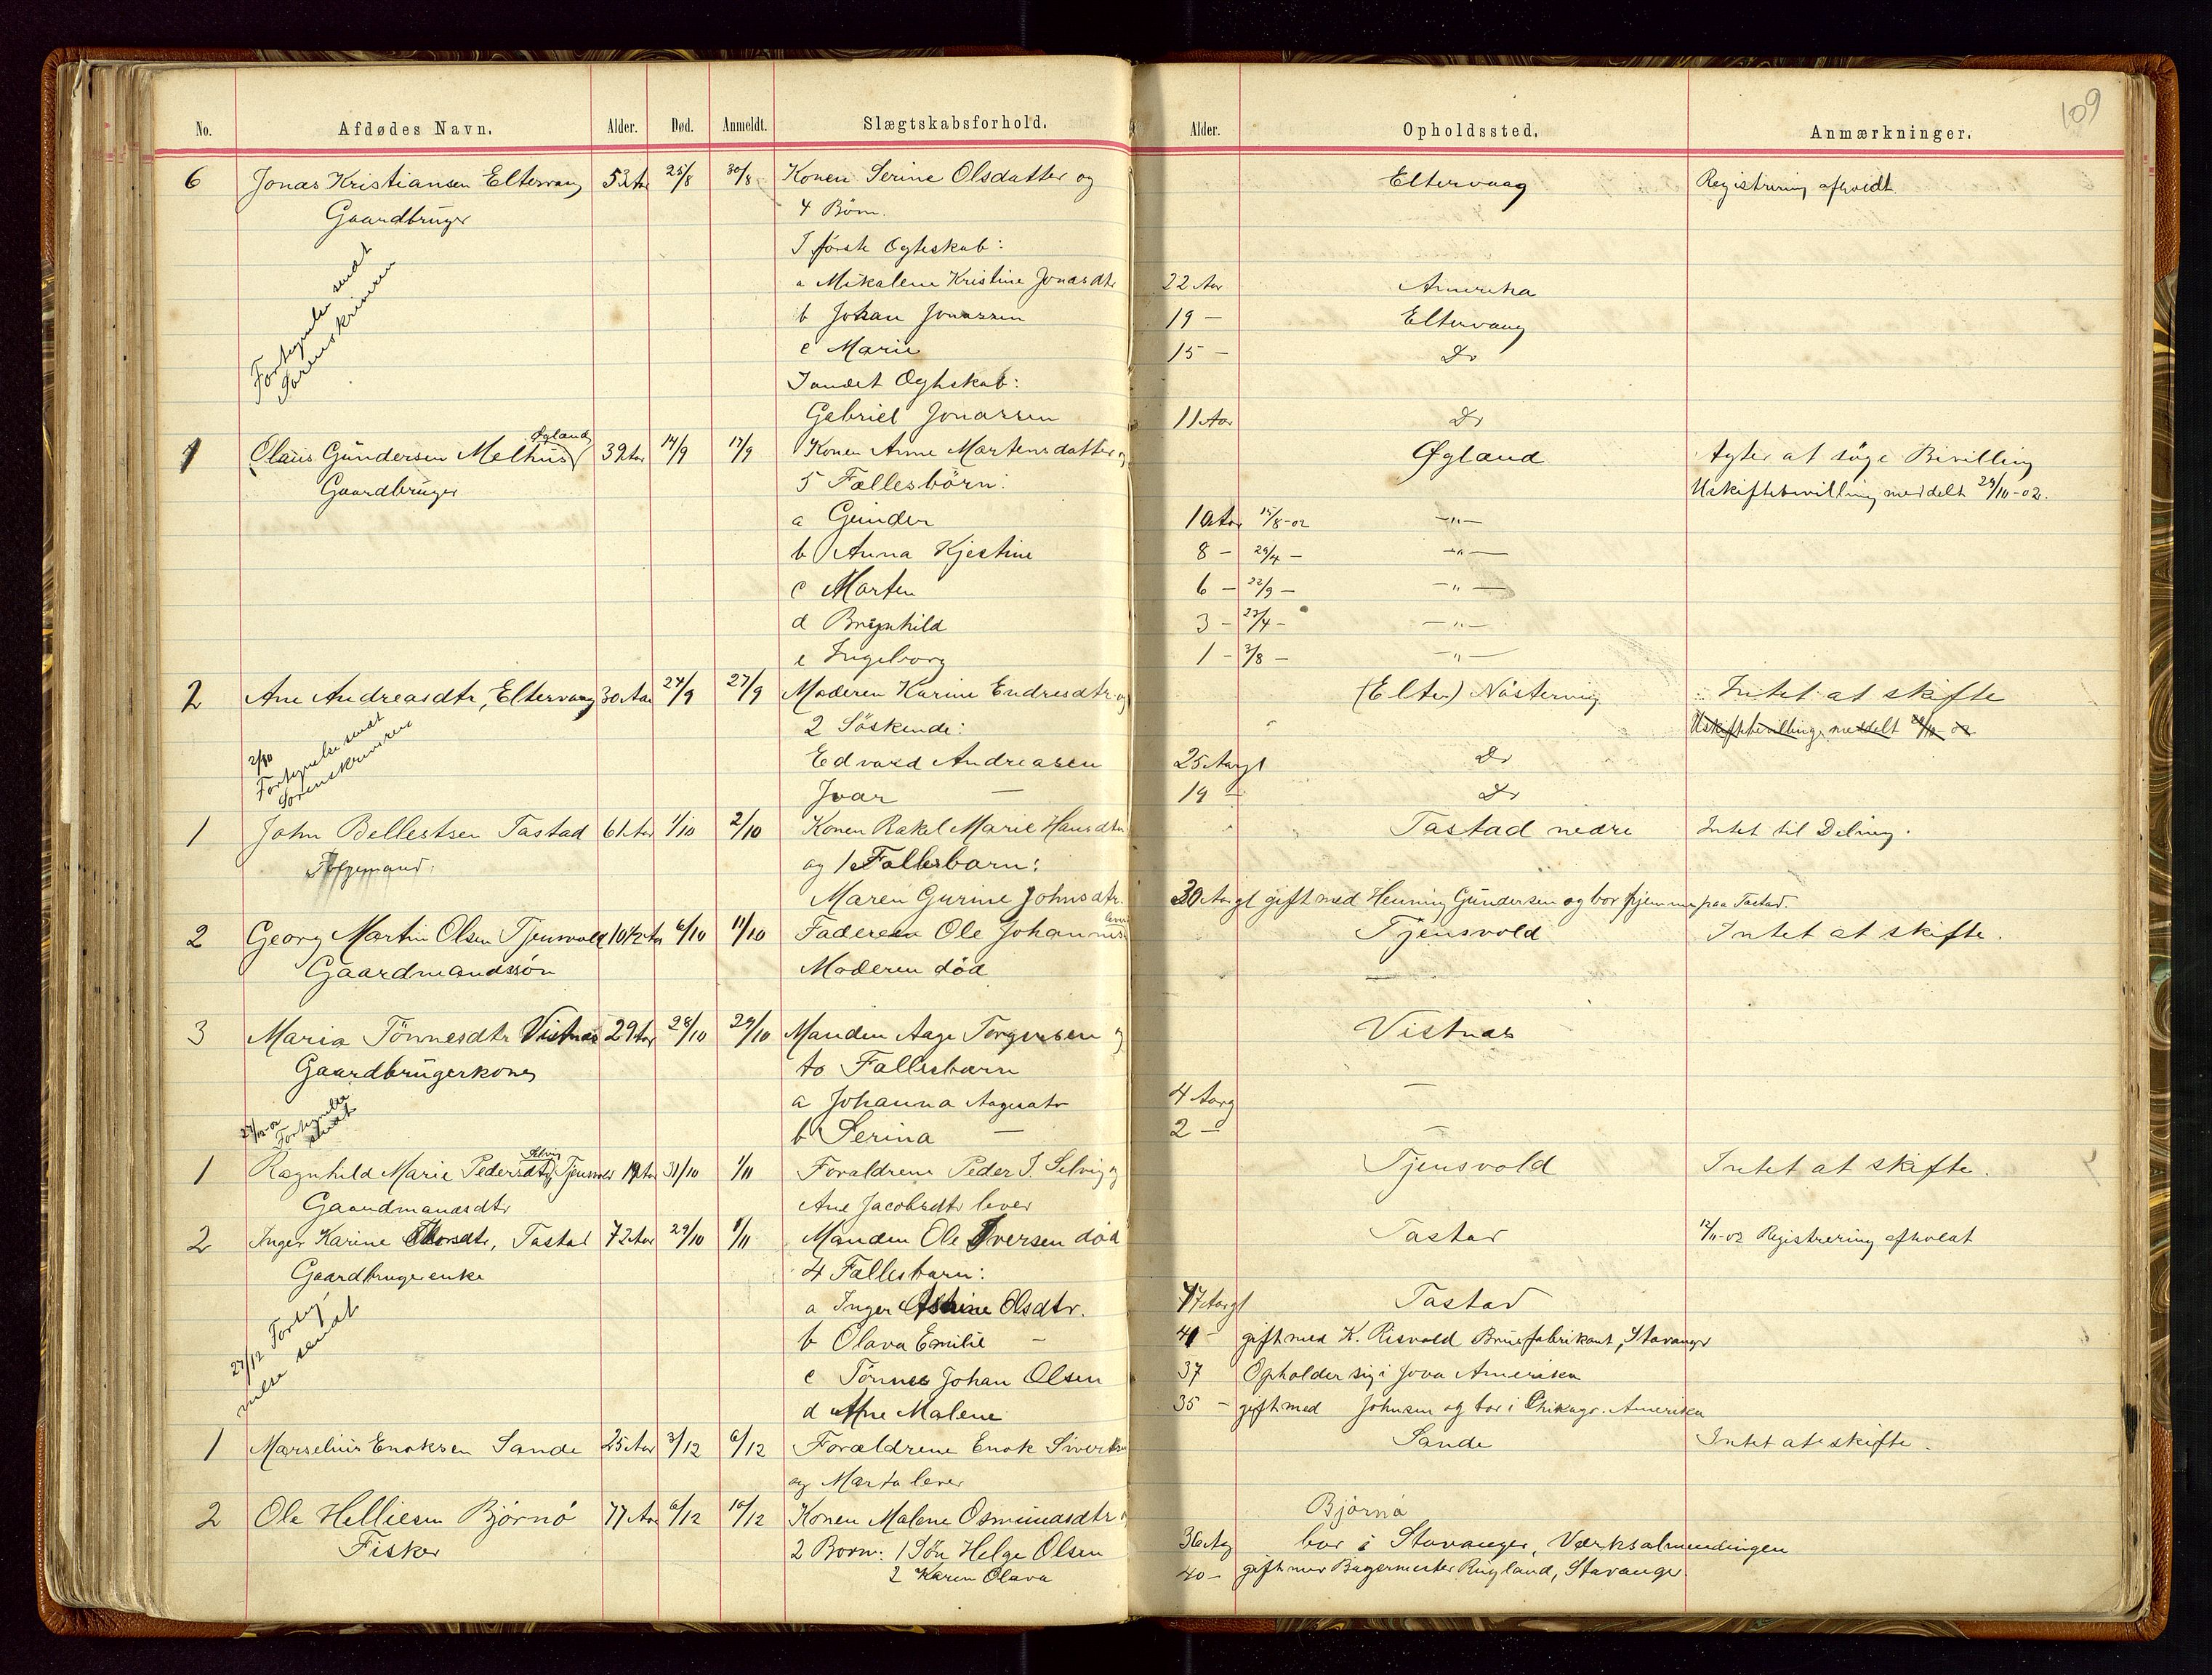 109
No. Afdødes Navn. Alder. Død. Anmeldt. Slægtskabsforhold. Alder. Opholdssted. Anmærkninger.
6 Jonas Kristiansen Eltervaag 53 Aar 25/8 30/8 Konen Serine Olsdatter og Eltervaag Registrering afholdt
Gaardbruger 4 Börn.
I förste Ægteskab:
a Mikalene Kristine Jonasdtr 22 Aar Amerika
b Johan Jonassen 19 — Eltervaag
c Marie 15 — Do
Fortegnelse sendt
Sorenskriveren
I andet Ægteskab:
Gabriel Jonassen 11 Aar Do
Øgland
1 Olaus Gundersen Melhus 39 Aar 14/9 17/9 Konen Anne Martensdatter og Øgland Agter at söge Bevilling
Gaardbruger 5 Fællesbörn: Uskiftebevilling meddelt 29/10-02.
a Gunder 10 Aar 15/8-02 —"—
b Anna Kjestine 8 — 29/4 — —"—
c Marten 6 — 22/9 — —"—
d Brynhild 3 — 23/4 — —"—
e Ingeborg 1 — 3/8 — —"—
2 Ane Andreasdtr, Eltervaag 30 Aar 24/9 27/9 Moderen Karine Endresdtr og (Elter) Nöstervig Intet at skifte
2 Söskende: Uskiftebevilling meddelt
Edvard Andreasen 25 Aargl Do
Ivar — 19 — Do
2/10
Fortegnelse sendt
Sorenskriveren
1 John Bellestsen Tastad 61 Aar 1/10 2/10 Konen Rakel Marie Hansdtr Tastad nedre Intet til Deling.
Folgemand. og 1 Fællesbarn:
Maren Gurine Johnsdtr. 30 Aargl gift med Henning Gundersen og bor hjemme paa Tastad.
2 Georg Martin Olsen Tjensvold 10 1/2 Aar 6/10 11/10 Faderen Ole Johannes lever Tjensvold Intet at skifte.
Gaardmandssön Moderen död —
3 Maria Tönnesdtr Vistnæs 29 Aar 28/10 29/10 Manden Aage Torgersen og Vistnæs
Gaardbrugerkone to Fællesbörn
a Johanna Aagesdtr 4 Aarg —
b Serina — 2 — —
Fortegnelse
sendt
Selvig
1 Ragnhild Marie Pedersdtr, Tjensvol 19 Aar 31/10 1/11 Forældrene Peder J. Selvig og Tjensvold Intet at skifte.
Gaardmandsdtr Ane Jacobsdtr lever
2 Inger Karine Thorsdtr, Tastad 72 Aar 29/10 8/11 Manden Ole Iversen död Tastad 12/11-02 Registrering afholdt
Gaardbrugerenke 4 Fællesbarn:
a Inger Olsdtr. 47 Aargl Tastad
b Olava Emilie — 41 — gift med K. Risvold Brusfabrikant, Stavanger
c Tönnes Johan Olsen 37 Opholder sig i Jova Amerika
d Ane Malene 35 — gift med Johnsen og bor i Chikago. Amerika
27/12 Forteg
nelse sendt
1 Marselius Enoksen Sande 25 Aar 3/12 6/12 Forældrene Enok Sivertsen Sande Intet at skifte.
og Marta lever
2 Ole Helliesen Bjørnö 77 Aar 6/12 10/12 Konen Malene Osmundsdtr Bjørnö
Fisker 2 Born: 1 Sön Helge Olsen 36 Aarg bor i Stavanger, Værksalmendingen
2 Karen Olava 40 — gift med Bagermester Ringland, Stavanger.